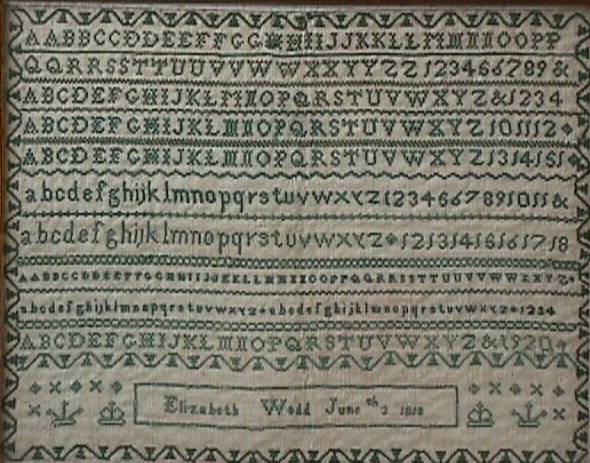 AABBCCDDEEFFGGHHIIJJKKLLMMNNOOPP
QQRRSSTTUUVVWWXXYYZZ1234566789&
ABCDEFGHIJKLMNOPQRSTUVWXYZ&1234
ABCDEFGHIJKLMNOPQRSTUVWXYZ101112
ABCDEFGHIJKLMNOPQRSTUVWXYZ1314151
abcdefghijklmnopqrstuvwxyz1234667891011&
abcdefghijklmnopqrstuvwxyz12131415161718
AABBCCDDEEFFGGHHIIJJKKLLMMNNOOPPQQRRSSTTUUVVWWXXYZ
abcdefghijklmnopqrstuvwxyzabcdefghijklmnopqrstuvwxyz1234
ABCDEFGHIJKLMNOPQRSTUVWXYZ&1920
Elizabeth Wedd June th 3